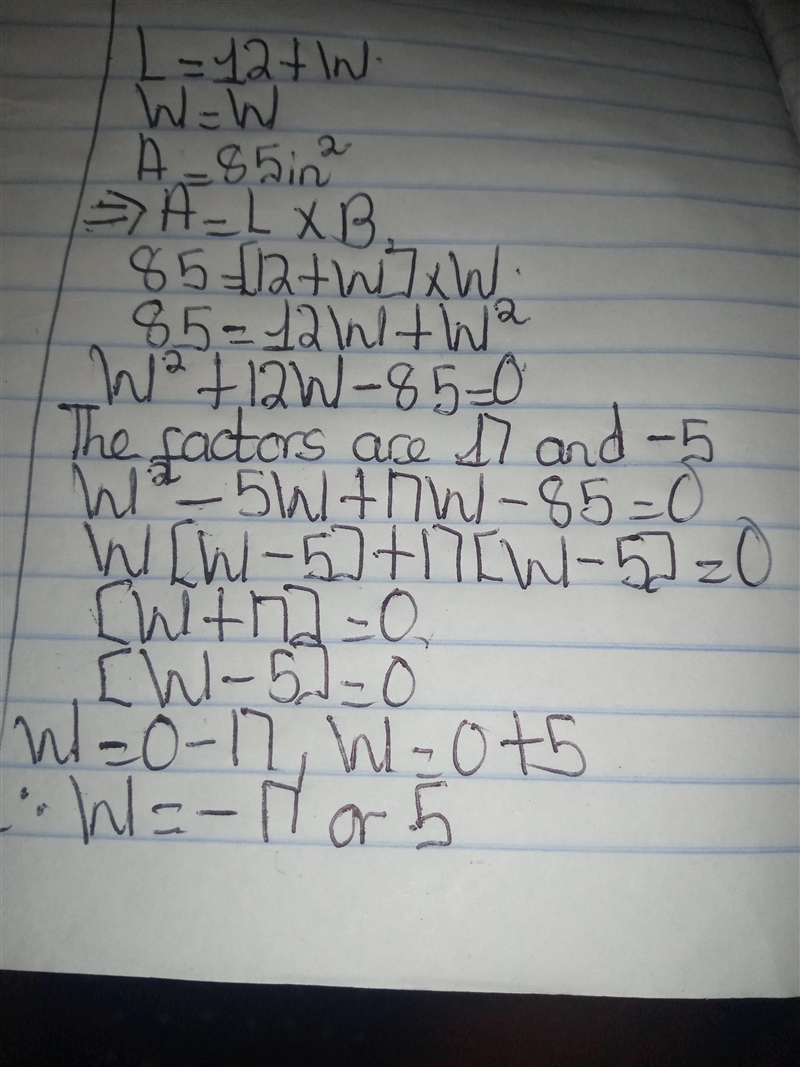 L=12+W.
W=W
A=85in²
⇒A=L×B,
85=[12+W]×W.
85=12W+W²
W²+12W-85=0
The factors are 17 and -5
W²-5W+17W-85=0
W[W-5]+17[W-5]=0
[W+17]=0,
[W-5]=0
W=0-17, W=0+5
∴W=-17 or 5